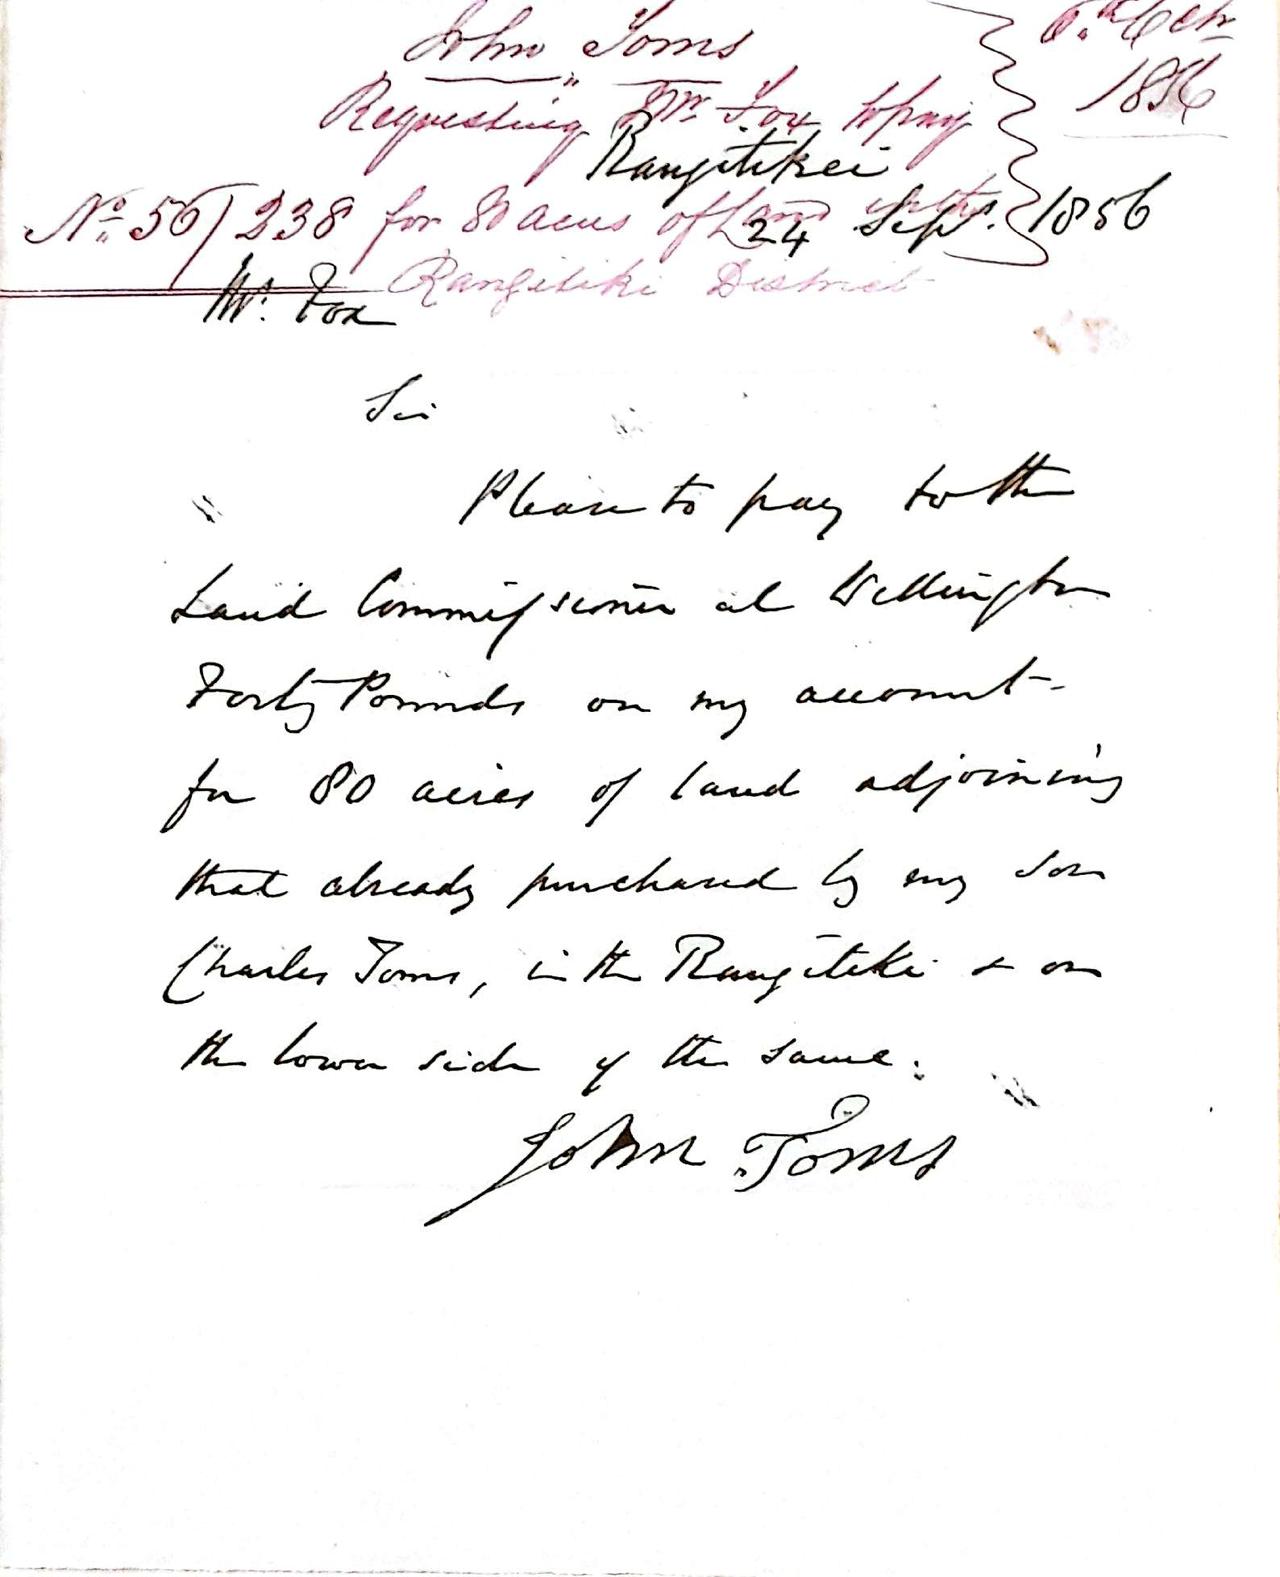 John Toms
6th Octr
1856
Requesting Mr. Fox to pay
Rangitikei
No. 56/238 for 80 acres of Land in the
24 Sept. 1856
Rangitiki District
Mr. Fox
Sir
Please to pay to the
Land Commissioner at Wellington
Forty Pounds on my account-
for 80 acres of land adjoining
that already purchased by my son
Charles Toms, in the Rangitiki & on
the lower side of the same.
John Toms